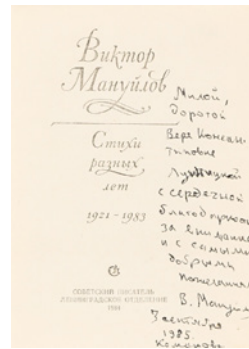 Виктор
Мануйлов
Стихи
разных
лет
1921-1983
СОВЕТСКИЙ ПИСАТЕЛЬ
ЛЕНИНГРАДСКОЕ ОТДЕЛЕНИЕ
1984
Милой,
дорогой
Вере Константи-
новне
Лукницкой
с сердечной
благодарностью
за внимание
и с самыми
добрыми
пожеланиями
В. Мануйлов
3 сентября
1985.
Комарово